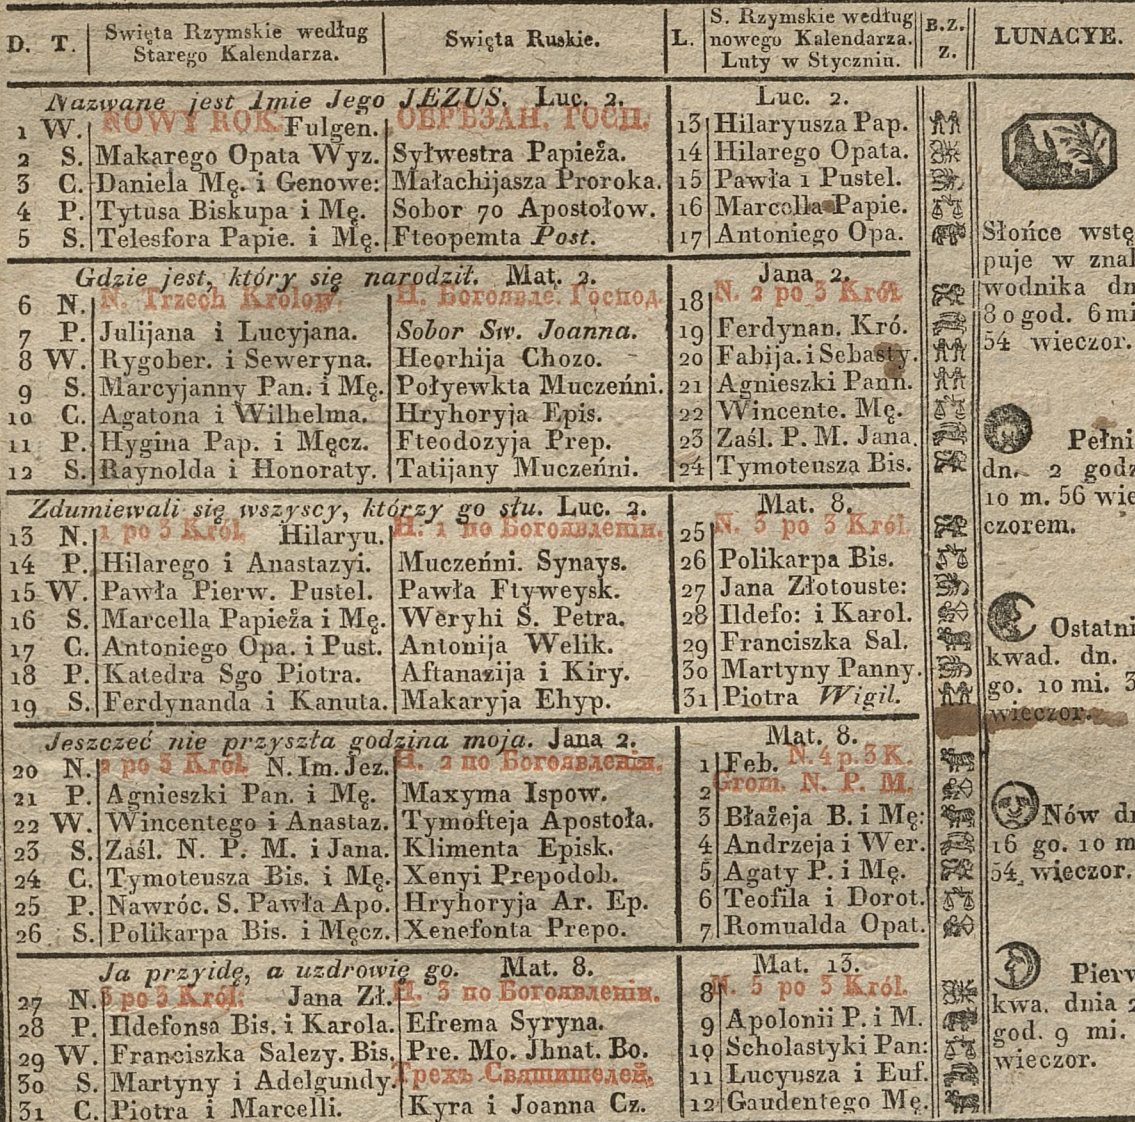 D. T. Swięta Rzymskie według Swięta Ruskie. L. S. Rzymskie według B.Z. LUNACYE.
Starego Kalendarza. nowego Kalendarza. z.
Luty w Styczniu.
Nazwane jest Imie Jego JEZUS. Luc. 2. Luc. 2.
1 W. NOWY ROK. Fulgen. ОБРѢЗАН. ГОСП. 13 Hilaryusza Pap.
2 S. Makarego Opata Wyz. Syłwestra Papieża. 14 Hilarego Opata.
3 C. Daniela Mę. i Genowe: Małachijasza Proroka. 15 Pawła 1 Pustel.
4 P. Tytusa Biskupa i Mę. Sobor 70 Apostołow. 16 Marcella Papie.
5 S. Telesfora Papie. i Mę. Fteopemta Post. 17 Antoniego Opa.
Gdzie jest, który się narodził. Mat. 2. Jana 2.
6 N. N. Trzech Królow. Н. Богоявле. Господ. 18 N. 2 po 3 Król.
7 P. Julijana i Lucyjana. Sobor Sw. Joanna. 19 Ferdynan. Kró.
8 W. Rygober. i Seweryna. Heorhija Chozo. 20 Fabija. i Sebasty.
9 S. Marcyjanny Pan. i Mę. Połyewkta Muczeńni. 21 Agnieszki Pann.
10 C. Agatona i Wilhelma. Hryhoryja Epis. 22 Wincente. Mę.
11 P. Hygina Pap. i Męcz. Fteodozyja Prep. 23 Zaśl. P. M. Jana.
12 S. Raynolda i Honoraty. Tatijany Muczeńni. 24 Tymoteusza Bis.
Zdumiewali się wszyscy, którzy go słu. Luc. 2. Mat. 8.
13 N. 1 po 3 Król. Hilaryu. Н. 1 по Богоявленіи. 25 N. 3 po 3 Król.
14 P. Hilarego i Anastazyi. Muczeńni. Synays. 26 Polikarpa Bis.
15 W. Pawła Pierw. Pustel. Pawła Ftyweysk. 27 Jana Złotouste:
16 S. Marcella Papieża i Mę. Weryhi S. Petra. 28 Ildefo: i Karol.
17 C. Antoniego Opa. i Pust. Antonija Welik. 29 Franciszka Sal.
18 P. Katedra Sgo Piotra. Aftanazija i Kiry. 30 Martyny Panny.
19 S. Ferdynanda i Kanuta. Makaryja Ehyp. 31 Piotra Wigil.
Jeszczeć nie przyszła godzina moja. Jana 2. Mat. 8.
20 N. 2 po 3 Król. N. Im. Jez. Н. 2 по Богоявленіи. 1 Feb. N. 4 p. 3 K.
21 P. Agnieszki Pan. i Mę. Maxyma Ispow. 2 Grom. N. P. M.
22 W. Wincentego i Anastaz. Tymofteja Apostoła. 3 Błażeja B. i Mę:
23 S. Zaśl. N. P. M. i Jana. Klimenta Episk. 4 Andrzeja i Wer.
24 C. Tymoteusza Bis. i Mę. Xenyi Prepodob. 5 Agaty P. i Mę.
25 P. Nawróc. S. Pawła Apo. Hryhoryja Ar. Ep. 6 Teofila i Dorot.
26 S. Polikarpa Bis. i Męcz. Xenefonta Prepo. 7 Romualda Opat.
Ja przyidę, a uzdrowię go. Mat. 8. Mat. 13.
27 N. 3 po 3 Król: Jana Zł. Н. 3 по Богоявленіи. 8 N. 5 po 3 Król.
28 P. Ildefonsa Bis. i Karola. Efrema Syryna. 9 Apolonii P. i M.
29 W. Franciszka Salezy. Bis. Pre. Mo. Jhnat. Bo. 10 Scholastyki Pan:
30 S. Martyny i Adelgundy. Трехъ Святителей. 11 Lucyusza i Euf.
31 C. Piotra i Marcelli. Kyra i Joanna Cz. 12 Gaudentego Mę.
Słońce wstę
puje w znak
wodnika dn
80 god. 6 mi
54 wieczor.
Pełni
dn. 2 godz
10 m. 56 wie
czorem.
Ostatni
kwad. dn.
go. 10 mi. 3
wieczor.
Nów dn
16 go. 10 m
54. wieczor.
Pierw
kwa. dnia 2
god. 9 mi.
wieczor.